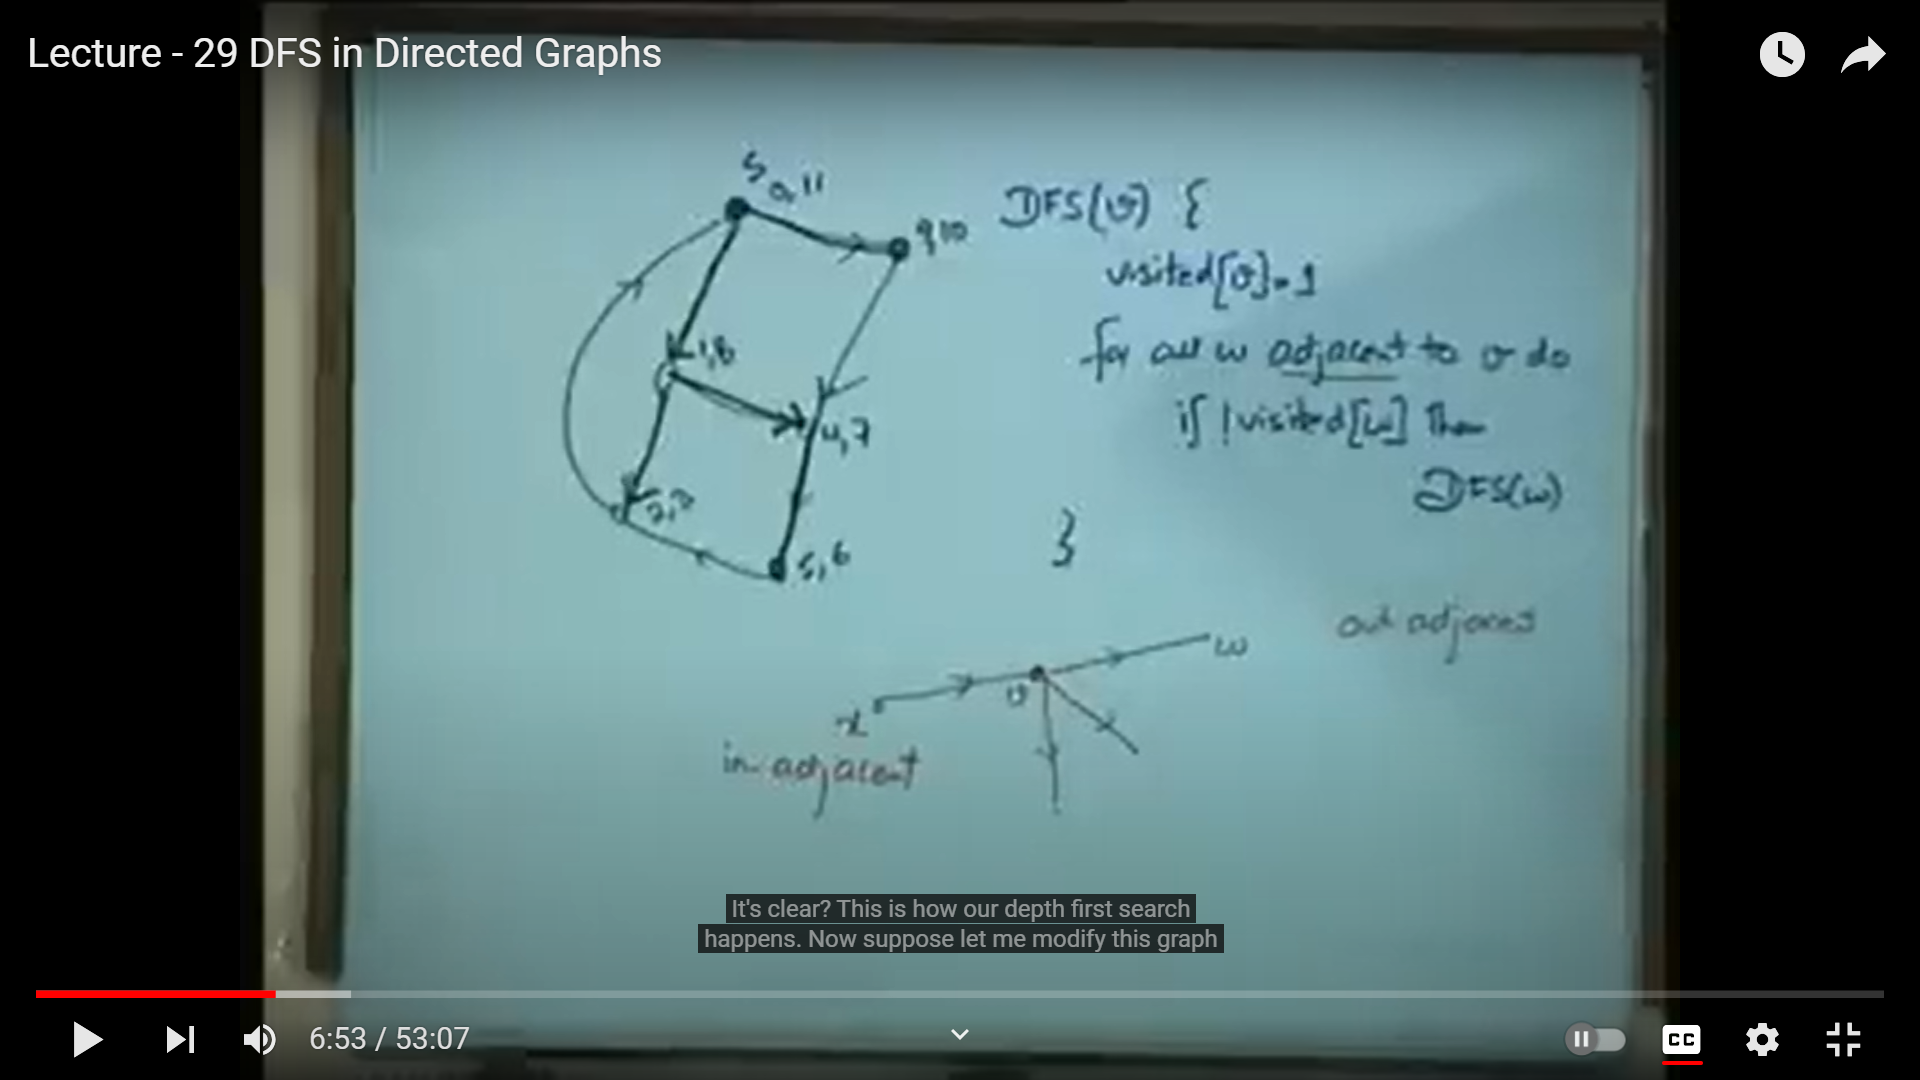 Lecture - 29 DFS in Directed Graphs
s
0,11
9,10
DFS(v) {
visited[v]=1
1,8
for all w adjacent to v do
4,7
if !visited[w] then
2,3
DFS(w)
5,6
}
out adjacent
w
v
x
in-adjacent
It's clear? This is how our depth first search
happens. Now suppose let me modify this graph
6:53 / 53:07
CC